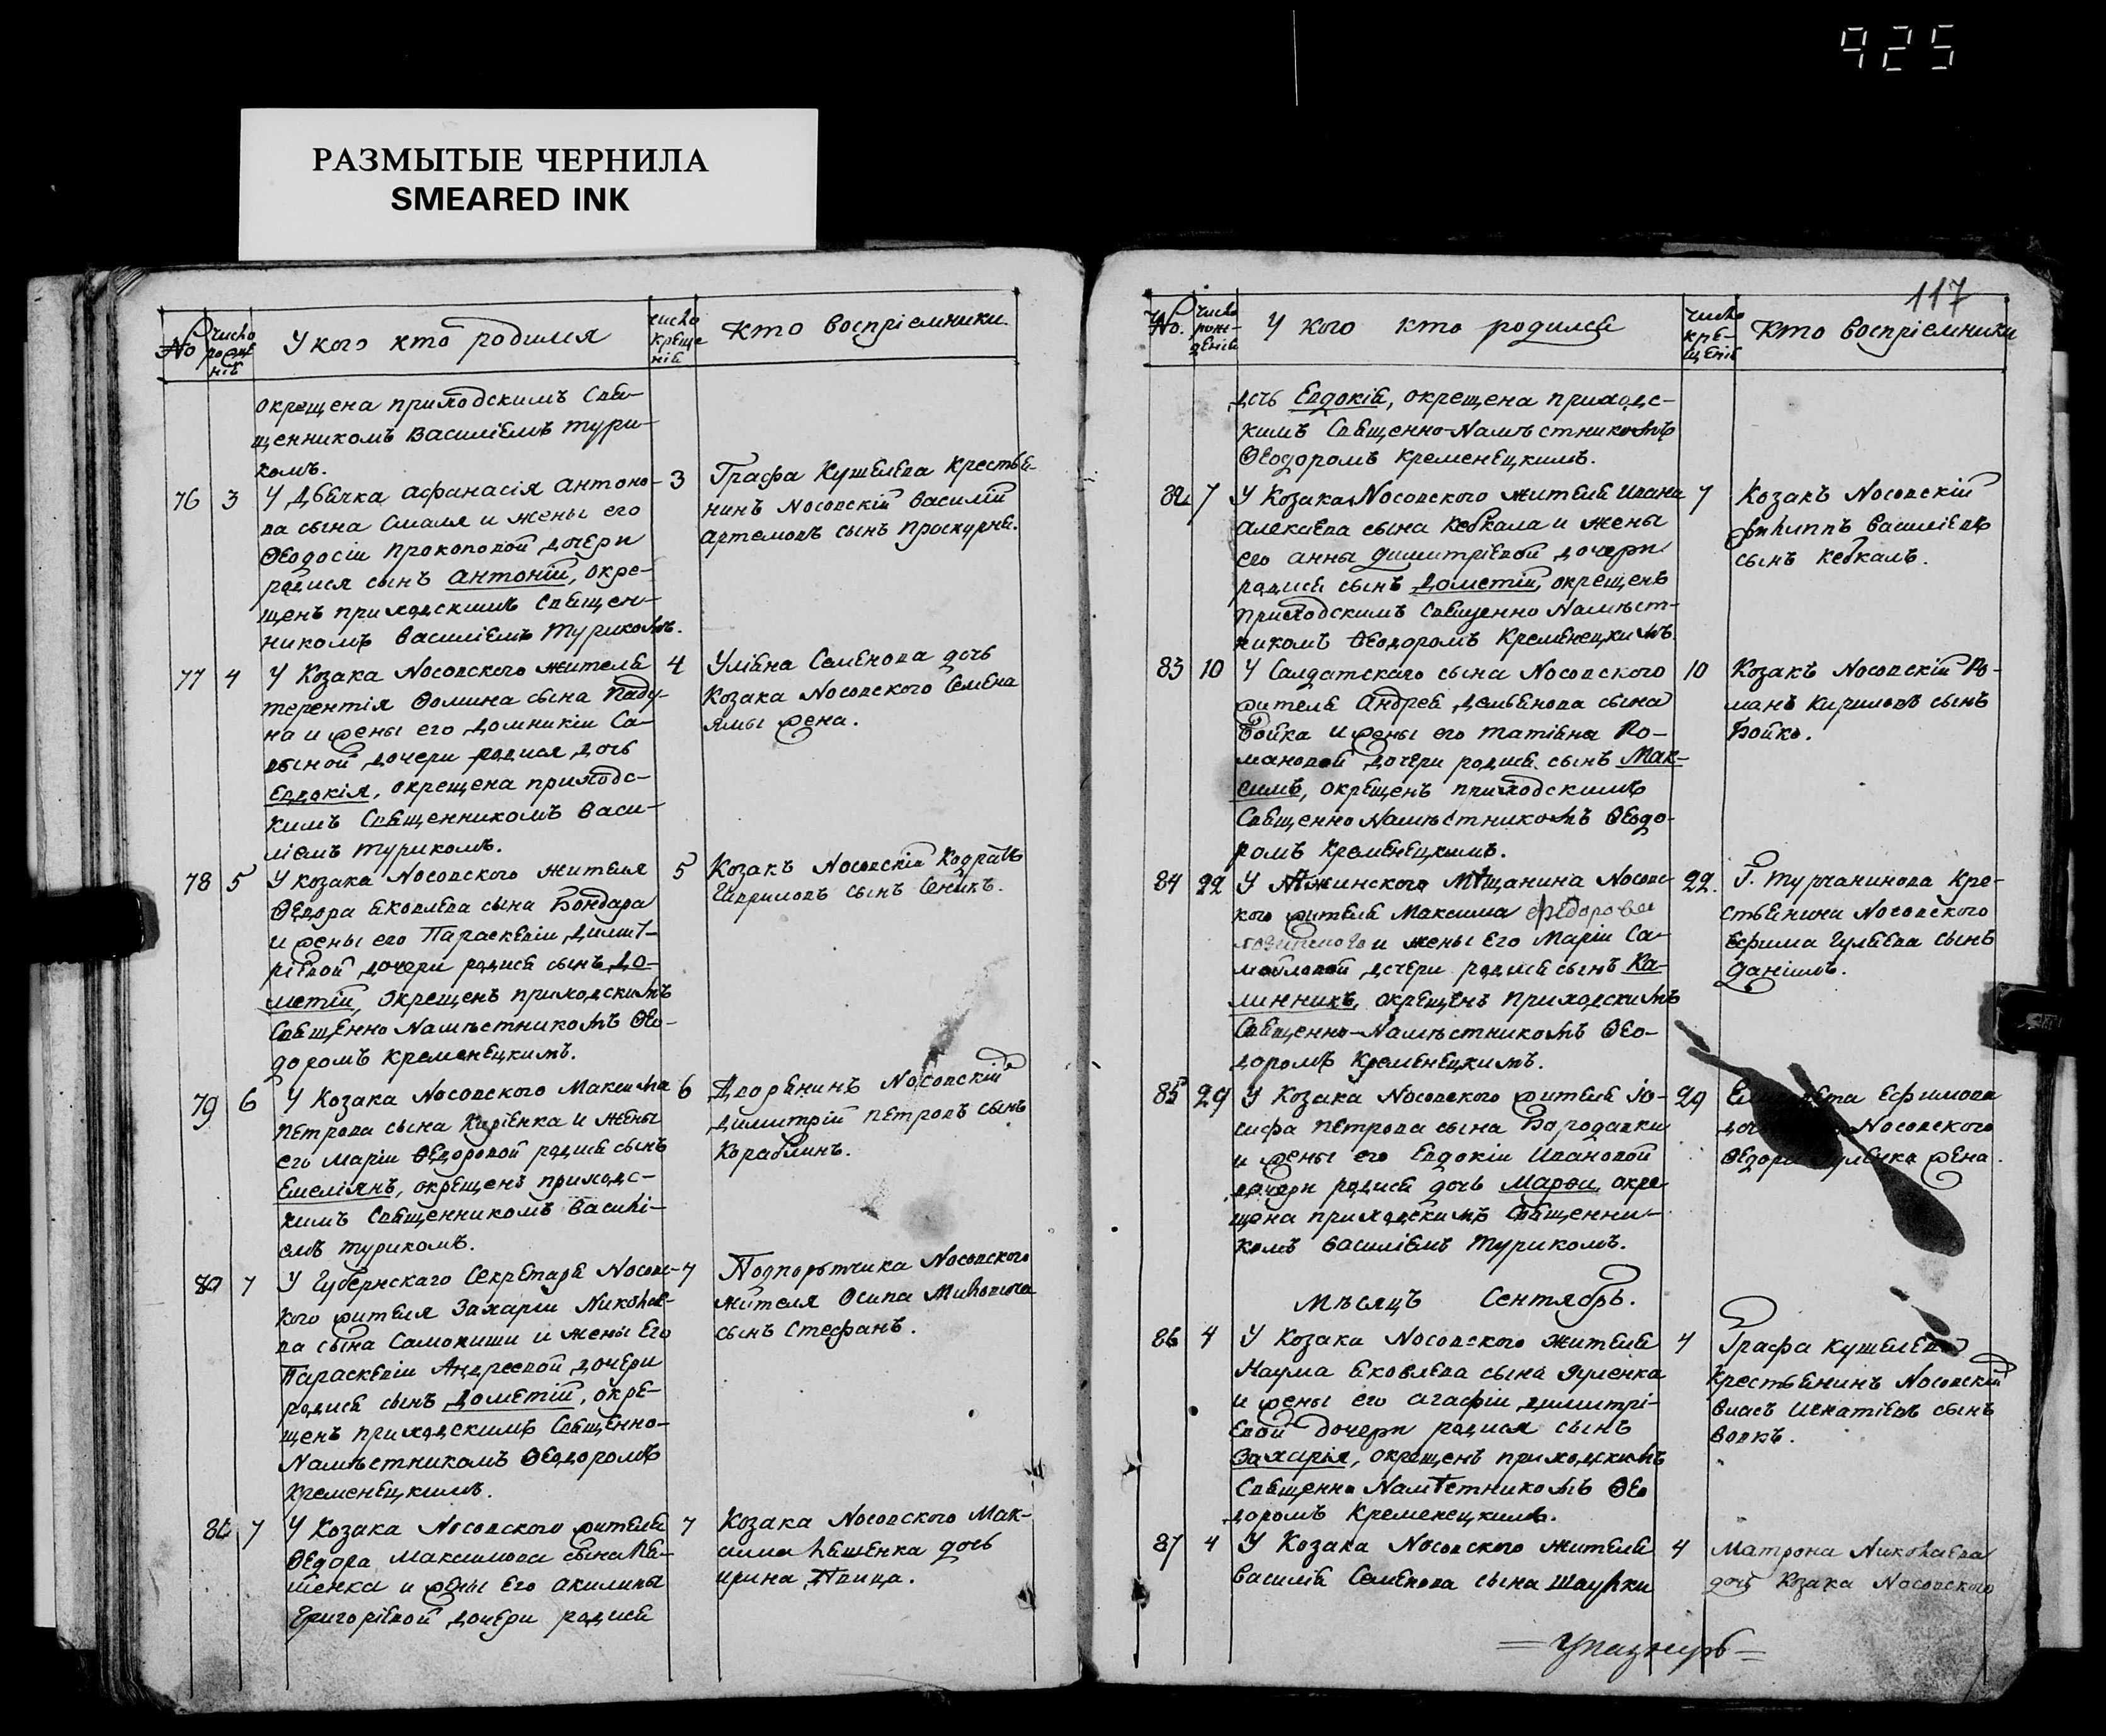 925
РАЗМЫТЫЕ ЧЕРНИЛА
SMEARED INK
No число рождения
У кого кто родился
число крещения
Кто воспріемники
окрещена приходскимъ Свя-
щенникомъ Василіемъ Тури-
комъ.
76 3 У Дьячка Афанасія Антоно-
ва сына Смаля и жены его
Ѳеодосіи Прокоповой дочери
родися сынъ Антоній, окре-
щенъ приходскимъ Священ-
никомъ Василіемъ Турикомъ.
3 Графа Кушелева Крестья-
нинъ Носовскій Василій
Артемовъ сынъ Проскурня.
77 4 У Козака Носовского жителя
Терентія Ѳомина сына Паду-
на и жены его Домникіи Са-
виной дочери родися дочь
Евдокія, окрещена приходс-
кимъ Священникомъ Васи-
ліемъ Турикомъ.
4 Уліяна Семенова дочь
Козака Носовского Семена
Ямы жена.
78 5 У Козака Носовского жителя
Ѳедора Яковлева сына Бондара
и жены его Параскевіи Димит-
ріевой дочери родися сынъ До-
метій, окрещенъ приходскимъ
Священно Намѣстникомъ Ѳео-
доромъ Кременецкимъ.
5 Козакъ Носовскій Кодратъ
Гавриловъ сынъ Сеникъ.
79 6 У Козака Носовского Максима
Петрова сына и жены
его Маріи Ѳедоровой родися сынъ
Емеліянъ, окрещенъ приходс-
кимъ Священникомъ Василі-
емъ Турикомъ.
6 Дворянинъ Носовскій
Димитрій Петровъ сынъ
Кораблинъ.
80 7 У Губернскаго Секретаря Носовс-
кого жителя Захаріи Николае-
ва сына Самокиши и жены Его
Параскевіи Андреевой дочери
родися сынъ Дометій, окре-
щенъ приходскимъ Священно-
Намѣстникомъ Ѳеодоромъ
Кременецкимъ.
7 Подпорутчика Носовского
жителя Осипа
сынъ Стефанъ.
81 7 У Козака Носовского жителя
Ѳедора Максимова сына Ле-
шенка и жены Его Акилины
Григоріевой дочери родися
7 Козака Носовского Мак-
сима Лешенка дочь
Ирина
117
No. число рожденія
У кого кто родился
число крещенія
Кто воспріемники
дочь Евдокія, окрещена приходс-
кимъ Священно-Намѣстникомъ
Ѳеодоромъ Кременецкимъ.
82 7 У Козака Носовского жителя Ивана
Алексіева сына Кебкала и жены
его Анны Димитріевой дочери
родися сынъ Дометій, окрещенъ
приходскимъ Священно Намѣст-
никомъ Ѳеодоромъ Кременецкимъ.
7 Козакъ Носовскій
Филиппъ Василіевъ
сынъ Кебкалъ.
83 10 У Салдатского сына Носовского
жителя Андрея Демьянова сына
Бойка и жены его Татіяна Ро-
мановой дочери родися сынъ Мак-
симъ, окрещенъ приходскимъ
Священно Намѣстникомъ Ѳеодо-
ромъ Кременецкимъ.
10 Козакъ Носовскій Ро-
манъ Кириловъ сынъ
Бойко.
84 22 У Нѣжинского Мѣщанина Носовс-
кого жителя Максима Федорова
и жены Его Маріи Са-
мойловой дочери родися сынъ Ка-
линникъ, окрещенъ приходскимъ
Священно-Намѣстникомъ Ѳео-
доромъ Кременецкимъ.
22. Г. Турчанинова Кре-
стьянина Носовского
Ефима Гуляева сынъ
Даніилъ.
85 29 У Козака Носовского жителя Іо-
сифа Петрова сына Бородавки
и жены его Евдокіи Ивановой
дочери родися дочь Марѳа, окре
щена приходскимъ Священни-
комъ Василіемъ Турикомъ.
29 Ефимова
Носовского
Ѳедора жена.
Мѣсяцъ Сентябрь.
86 4 У Козака Носовского жителя
Наума Яковлева сына Гуленка
и жены его Агафіи Димитрі-
евой дочери родися сынъ
Захарія, окрещенъ приходскимъ
Священно Намѣстникомъ Ѳео
доромъ Кременецкимъ.
4 Графа Кушелева
Крестьянинъ Носовскій
Власъ Игнатіевъ сынъ
Вовкъ.
87 4 У Козака Носовского жителя
Василія Семенова сына Шаулки
4 Матрона Николаева
дочь Козака Носовского